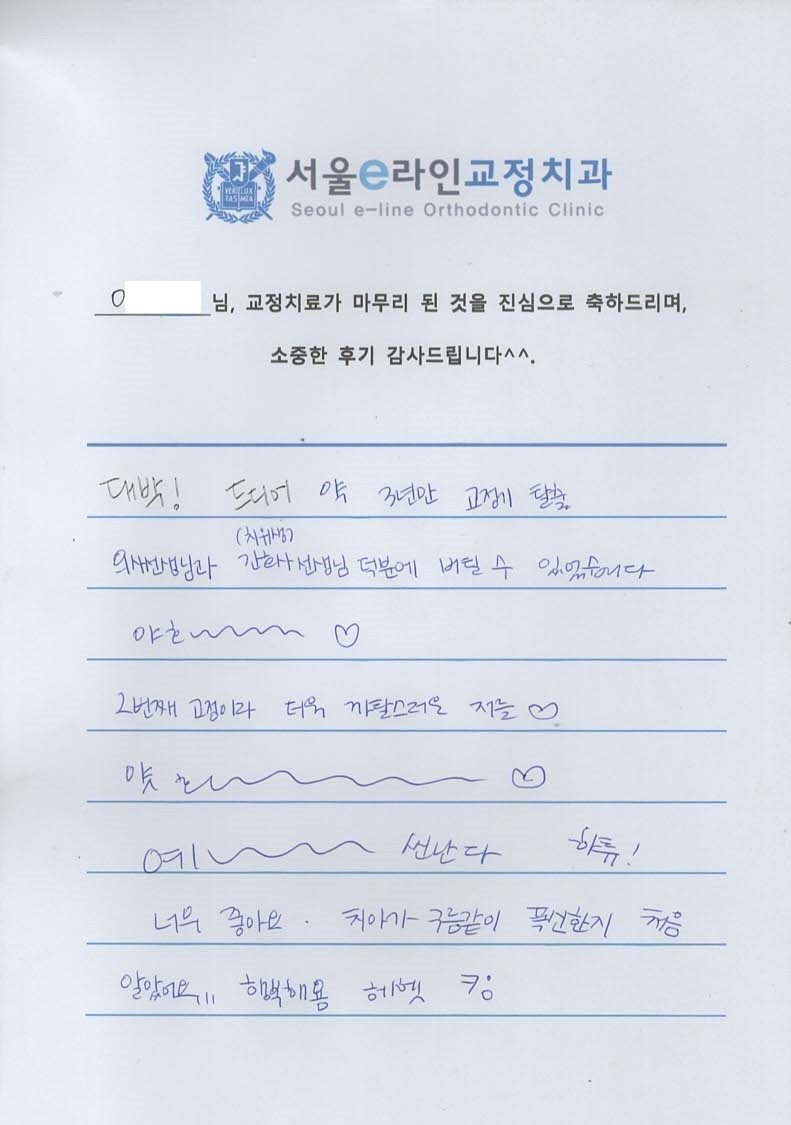 서울e라인교정치과
Seoul e-line Orthodontic Clinic
VERI LUX
TAS MEA
님, 교정치료가 마무리 된 것을 진심으로 축하드리며,
소중한 후기 감사드립니다^^.
대박! 드디어 약 3년만 교정기 탈출
(치위생)
의사선생님과 간호사선생님 덕분에 버틸 수 있었습니다
야호~~~~ ♡
2번째 교정이라 더욱 까탈스러운 저를 ♡
얏호~~~~ ♡
예~~~~ 씐난다 햐튜!
너무 좋아요. 치아가 구름같이 폭신한지 처음
알았어요,, 행복해용 헤헷